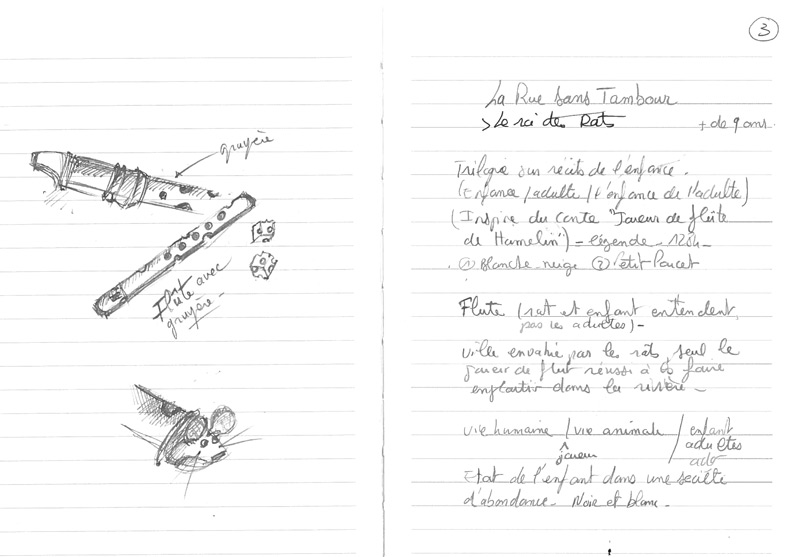 gruyère
Flûte avec
gruyère -
3
La Rue sans Tambour
> Le roi des Rats
+ de 9 ans
Trilogie sur récits de l'enfance.
(Enfance / adulte / + l'enfance de l'adulte)
(Inspire du Conte "Joueur de flûte
de Hamelin") - légende - 1284 -
. ① Blanche neige ② Petit Poucet
Flute (rat et enfant entendent,
pas les adultes) -
ville envahie par les rats, seul le
joueur de flut réussi à faire
engloutir dans la rivière -
vie humaine / vie animale / enfant
adultes
ado
^
joueur
Etat de l'enfant dans une société
d'abondance - Noir et blanc -